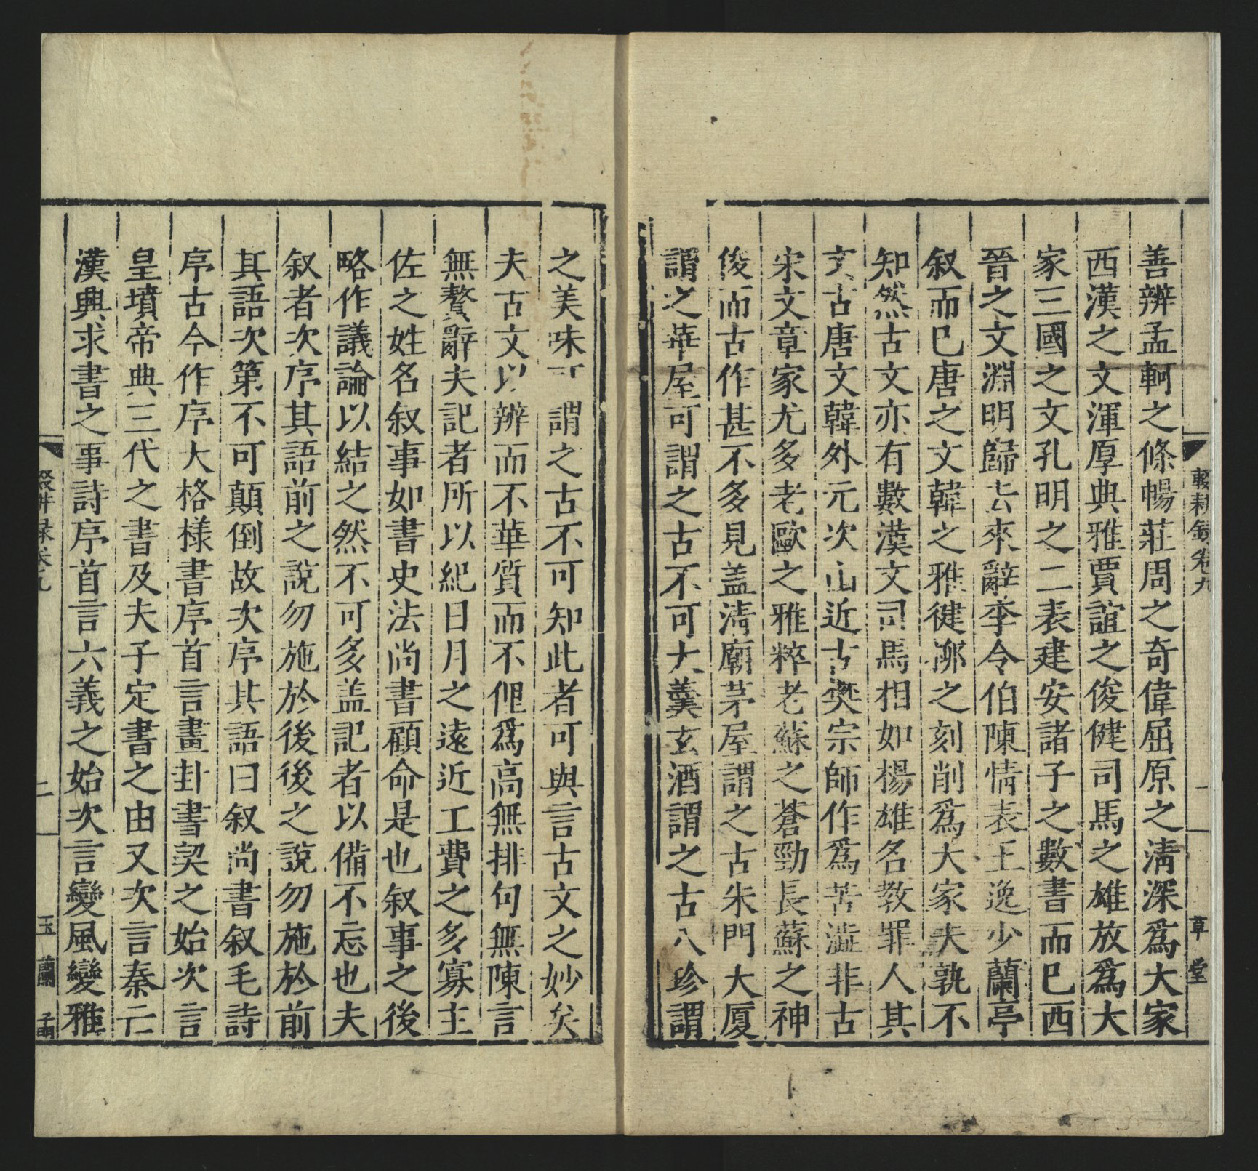 善辨孟軻之條暢莊周之奇偉屈原之清深爲大家
西漢之文渾厚典雅賈誼之俊健司馬之雄放爲大
家三國之文孔明之二表建安諸子之數書而已西
晉之文淵明歸去來辭李令伯陳情表王逸少蘭亭
叙而已唐之文韓之雅健柳之刻削爲大家夫孰不
知然古文亦有數漢文司馬相如揚雄名教罪人其
文古唐文韓外元次山近古樊宗師作爲苦澁非古
宋文章家尤多老歐之雅粹老蘇之蒼勁長蘇之神
俊而古作甚不多見盖清廟茅屋謂之古朱門大厦
謂之華屋可謂之古不可大羹玄酒謂之古八珍謂
之美味可謂之古不可知此者可與言古文之妙矣
夫古文以辨而不華質而不俚爲高無排句無陳言
無贅辭夫記者所以紀日月之遠近工費之多寡主
佐之姓名叙事如書史法尚書顧命是也叙事之後
略作議論以結之然不可多盖記者以備不忘也夫
叙者次序其語前之說勿施於後後之說勿施於前
其語次第不可顛倒故次序其語曰叙尚書叙毛詩
序古今作序大格樣書序首言畫卦書契之始次言
皇墳帝典三代之書及夫子定書之由又次言秦亡
漢典求書之事詩序首言六義之始次言變風變雅
輟耕錄卷九
一
草堂
輟耕录卷九
二
玉蘭